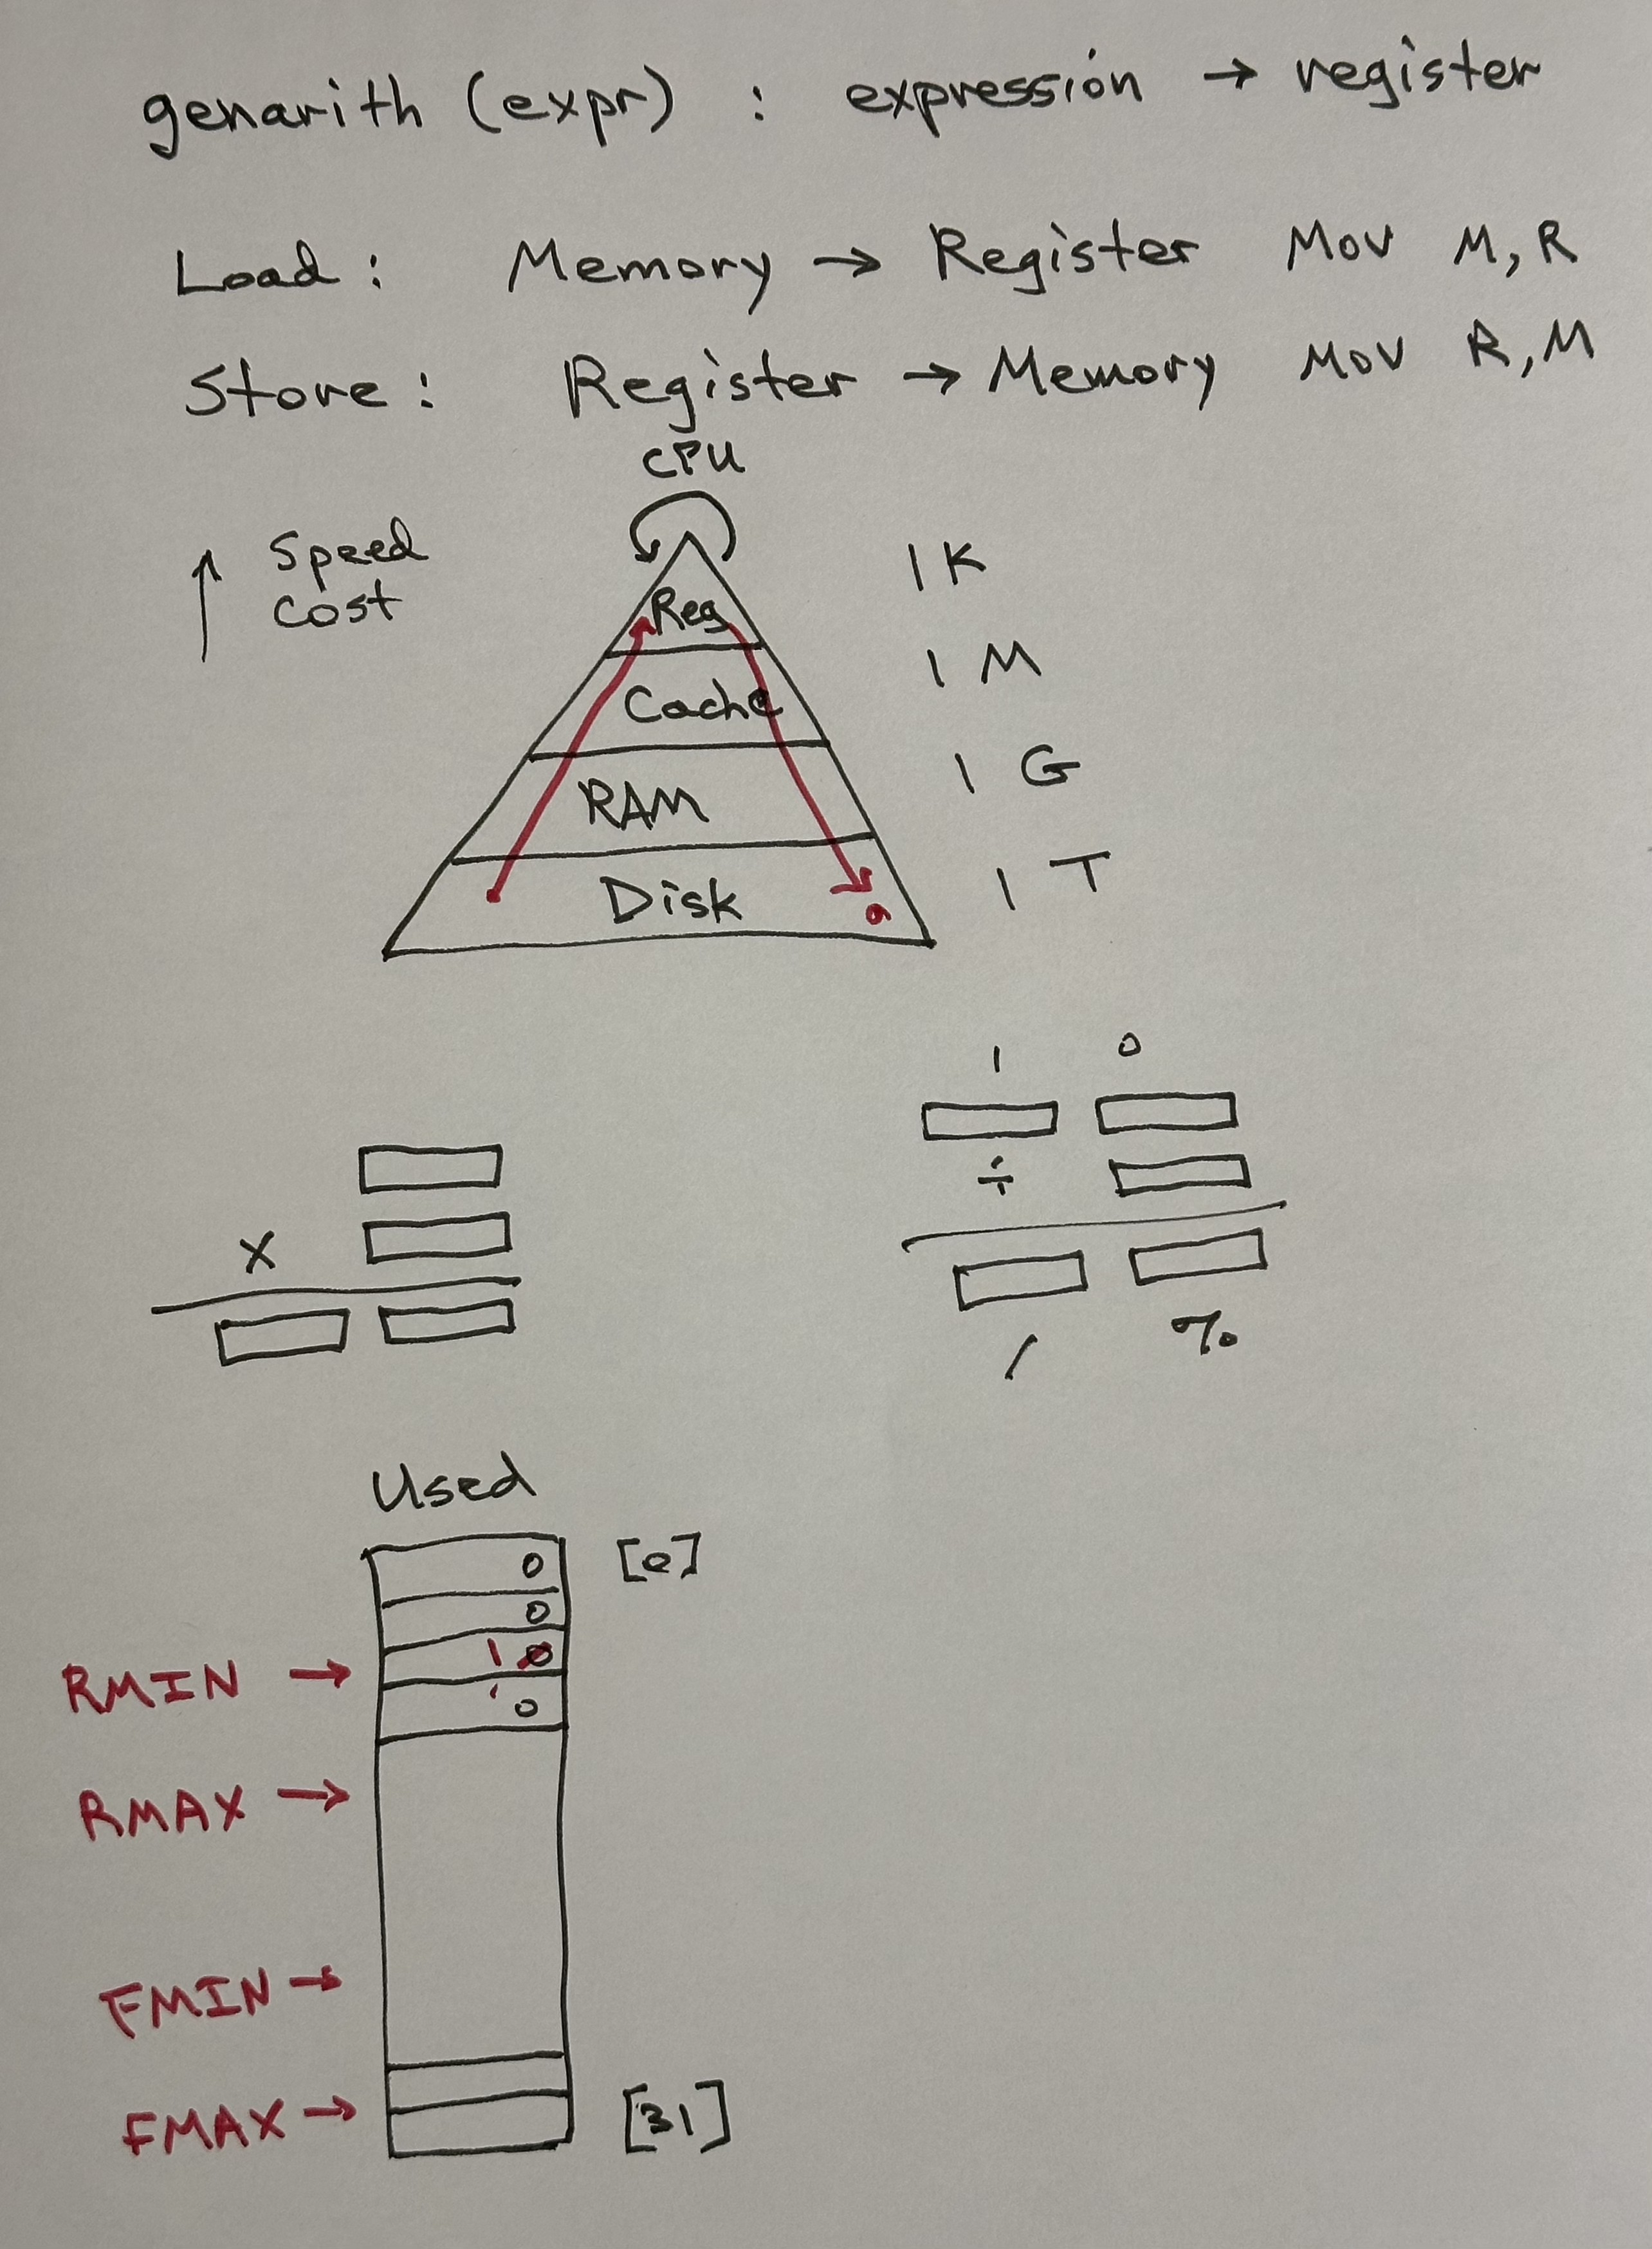 genarith (expr) : expression → register
Load : Memory → Register Mov M, R
Store : Register → Memory Mov R, M
CPU
↑ Speed
Cost
Reg 1 K
Cache 1 M
RAM 1 G
Disk 1 T
1 0
÷
x
/ %
Used
0 [0]
0
RMIN → 1 0
0
RMAX →
FMIN →
FMAX → [31]